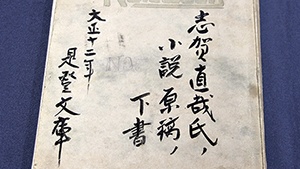 志賀直哉氏ノ
小説原稿ノ
下書
大正十二年
是登文庫